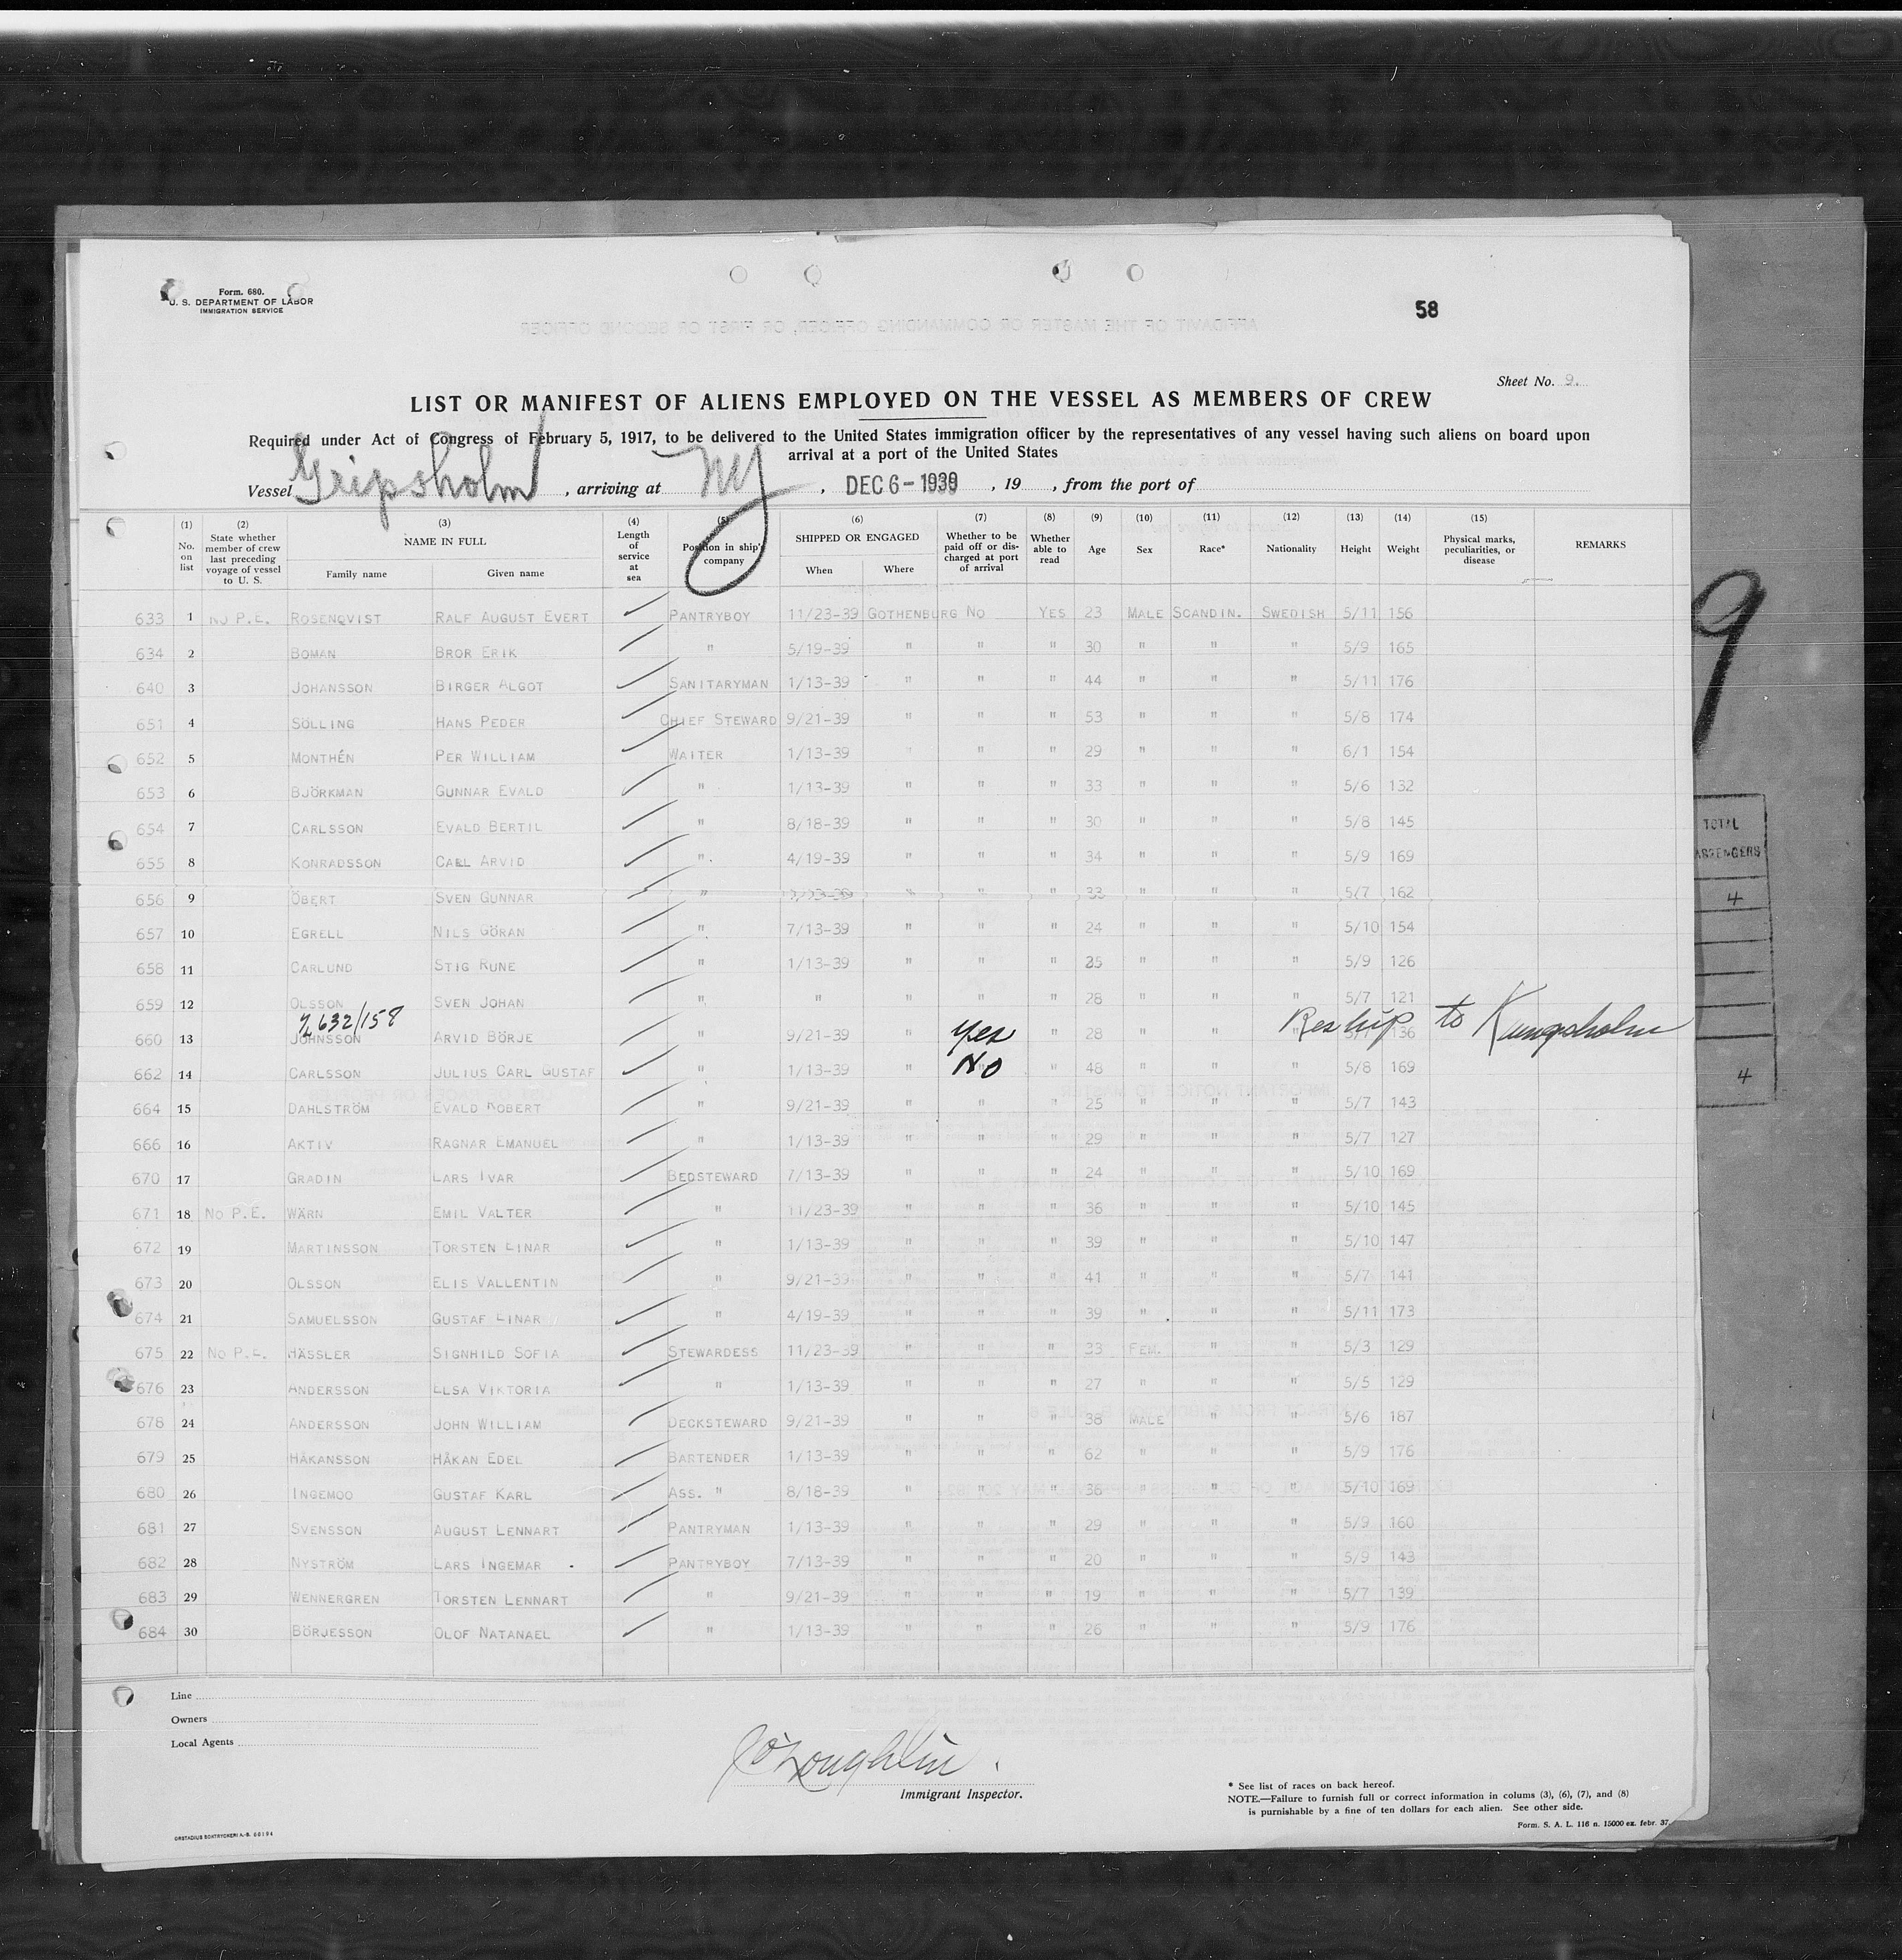 Form. 680.
U. S. DEPARTMENT OF LABOR
IMMIGRATION SERVICE
58
Sheet No. 9.
LIST OR MANIFEST OF ALIENS EMPLOYED ON THE VESSEL AS MEMBERS OF CREW
Required under Act of Congress of February 5, 1917, to be delivered to the United States immigration officer by the representatives of any vessel having such aliens on board upon
arrival at a port of the United States
Vessel Gripsholm, arriving at NY, DEC 6-1939, 19 , from the port of
(1) No. on list (2) State whether member of crew last preceding voyage of vessel to U. S. (3) NAME IN FULL Family name Given name (4) Length of service at sea (5) Position in ship's company (6) SHIPPED OR ENGAGED When Where (7) Whether to be paid off or discharged at port of arrival (8) Whether able to read (9) Age (10) Sex (11) Race* (12) Nationality (13) Height (14) Weight (15) Physical marks, peculiarities, or disease REMARKS
633 1 NO P.E. ROSENQVIST RALF AUGUST EVERT PANTRYBOY 11/23-39 GOTHENBURG NO YES 23 MALE SCANDIN. SWEDISH 5/11 156
634 2 BOMAN BROR ERIK " 5/19-39 " " " 30 " " " 5/9 165
640 3 JOHANSSON BIRGER ALGOT SANITARYMAN 1/13-39 " " " 44 " " " 5/11 176
651 4 SÖLLING HANS PEDER CHIEF STEWARD 9/21-39 " " " 53 " " " 5/8 174
652 5 MONTHÉN PER WILLIAM WAITER 1/13-39 " " " 29 " " " 6/1 154
653 6 BJÖRKMAN GUNNAR EVALD " 1/13-39 " " " 33 " " " 5/6 132
654 7 CARLSSON EVALD BERTIL " 8/18-39 " " " 30 " " " 5/8 145
655 8 KONRADSSON CARL ARVID " 4/19-39 " " " 34 " " " 5/9 169
656 9 ÖBERT SVEN GUNNAR " " " " 33 " " " 5/7 162
657 10 EGRELL NILS GÖRAN " 7/13-39 " " " 24 " " " 5/10 154
658 11 CARLUND STIG RUNE " 1/13-39 " " " 25 " " " 5/9 126
659 12 OLSSON SVEN JOHAN " " " " " 26 " " " 5/7 121
632/158
660 13 JOHNSSON ARVID BÖRJE " 9/21-39 " Yes " 28 " " " 136 Reship to Kungsholm
662 14 CARLSSON JULIUS CARL GUSTAF " 1/13-39 " No " 48 " " " 5/8 169
664 15 DAHLSTRÖM EVALD ROBERT " 9/21-39 " " " 25 " " " 5/7 143
666 16 AKTIV RAGNAR EMANUEL " 1/13-39 " " " 29 " " " 5/7 127
670 17 GRADIN LARS IVAR BEDSTEWARD 7/13-39 " " " 24 " " " 5/10 169
671 18 NO P.E. WÄRN EMIL VALTER " 11/23-39 " " " 36 " " " 5/10 145
672 19 MARTINSSON TORSTEN EINAR " 1/13-39 " " " 39 " " " 5/10 147
673 20 OLSSON ELIS VALLENTIN " 9/21-39 " " " 41 " " " 5/7 141
674 21 SAMUELSSON GUSTAF EINAR " 4/19-39 " " " 39 " " " 5/11 173
675 22 NO P.E. HÄSSLER SIGNHILD SOFIA STEWARDESS 11/23-39 " " " 33 FEM. " " 5/3 129
676 23 ANDERSSON ELSA VIKTORIA " 1/13-39 " " " 27 " " " 5/5 129
678 24 ANDERSSON JOHN WILLIAM DECKSTEWARD 9/21-39 " " " 38 MALE " " 5/6 187
679 25 HÅKANSSON HÅKAN EDEL BARTENDER 1/13-39 " " " 62 " " " 5/9 176
680 26 INGEMOO GUSTAF KARL ASS. " 8/18-39 " " " 36 " " " 5/10 169
681 27 SVENSSON AUGUST LENNART PANTRYMAN 1/13-39 " " " 29 " " " 5/9 160
682 28 NYSTRÖM LARS INGEMAR PANTRYBOY 7/13-39 " " " 20 " " " 5/9 143
683 29 WENNERGREN TORSTEN LENNART " 9/21-39 " " " 19 " " " 5/7 139
684 30 BÖRJESSON OLOF NATANAEL " 1/13-39 " " " 26 " " " 5/9 176
9
TOTAL
4
4
Line
Owners
Local Agents
O'Loughlin
Immigrant Inspector.
* See list of races on back hereof.
NOTE.—Failure to furnish full or correct information in colums (3), (6), (7), and (8)
is punishable by a fine of ten dollars for each alien. See other side.
Form. S. A. L. 116 n. 15000 ex. febr. 37.